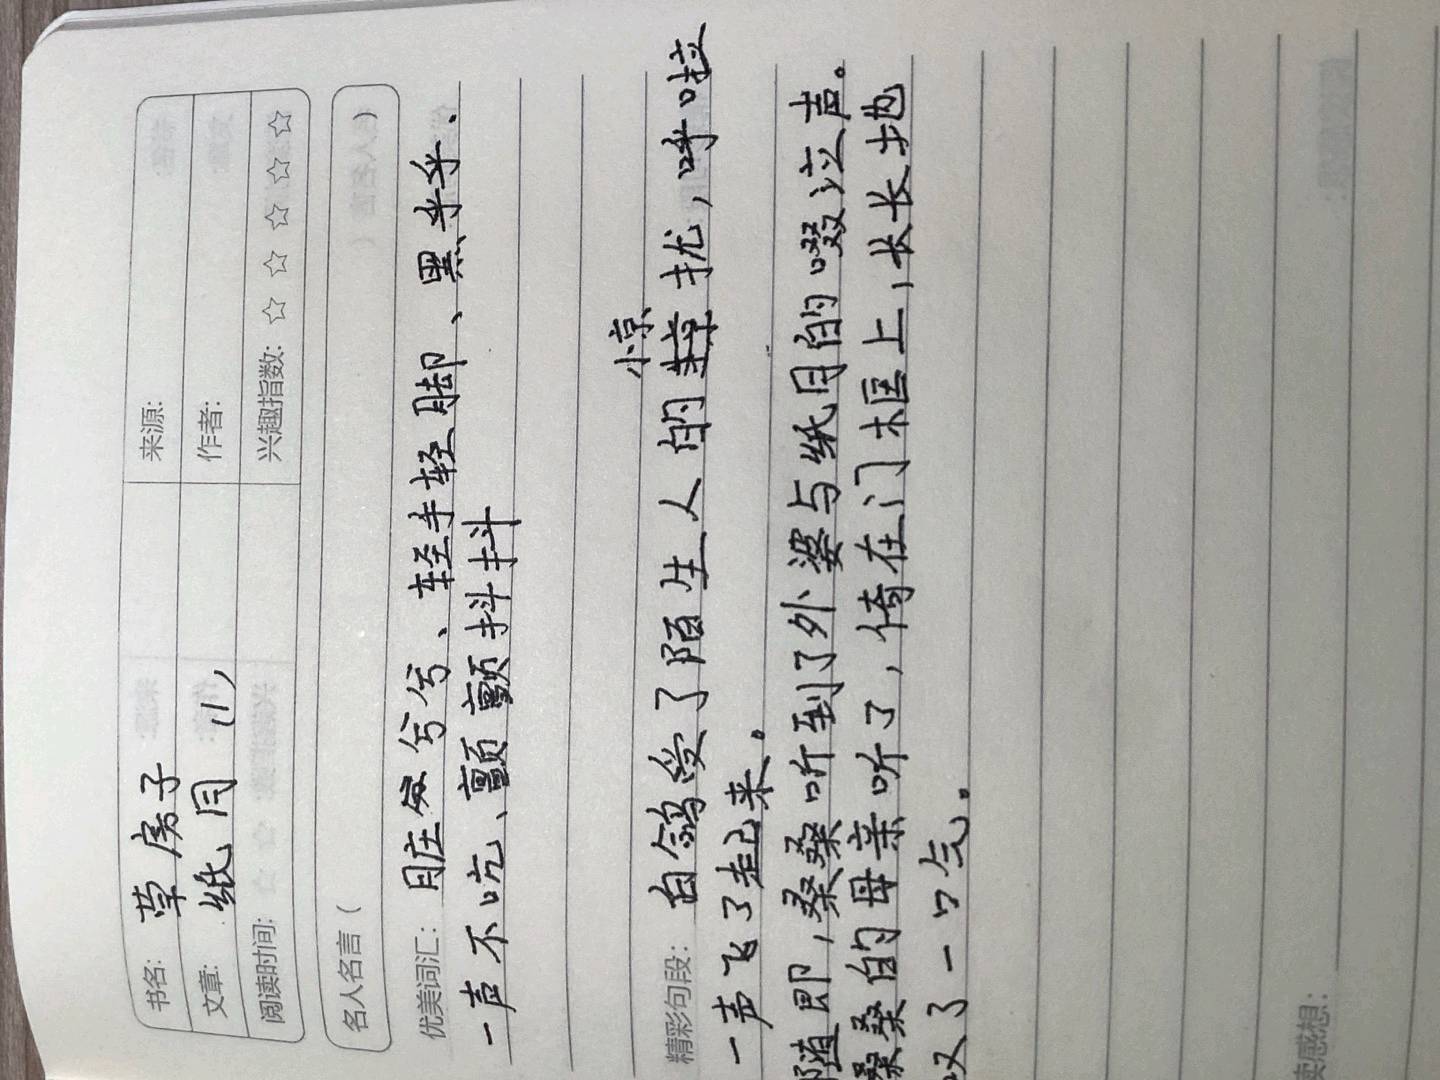 书名: 草房子
来源:
文章: 纸月 (1)
作者:
阅读时间:
兴趣指数: ☆ ☆ ☆ ☆ ☆
名人名言 ( )
优美词汇: 脏兮兮、轻手轻脚、黑乎乎、
一声不吭、颤颤抖抖
惊
精彩句段: 白鸽受了陌生人的扰,呼啦
一声飞了起来。
随即,桑桑听到了外婆与纸月的啜泣声。
桑桑的母亲听了,倚在门框上,长长地
叹了一口气。
读感想: